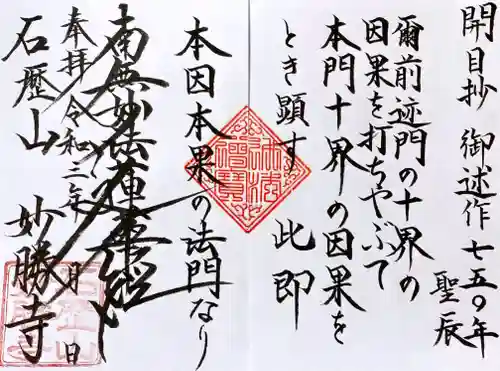 開目抄 御述作七五〇年
聖辰
爾前迹門の十界の
因果を打ちやぶて
本門十界の因果を
とき顕す 此即
本因本果の法門なり
南無妙法蓮華経
奉拝 令和三年 月 日
石歴山 妙勝寺